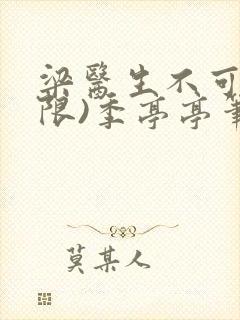 梁醫生不可
限)季亭亭筆
莫某人